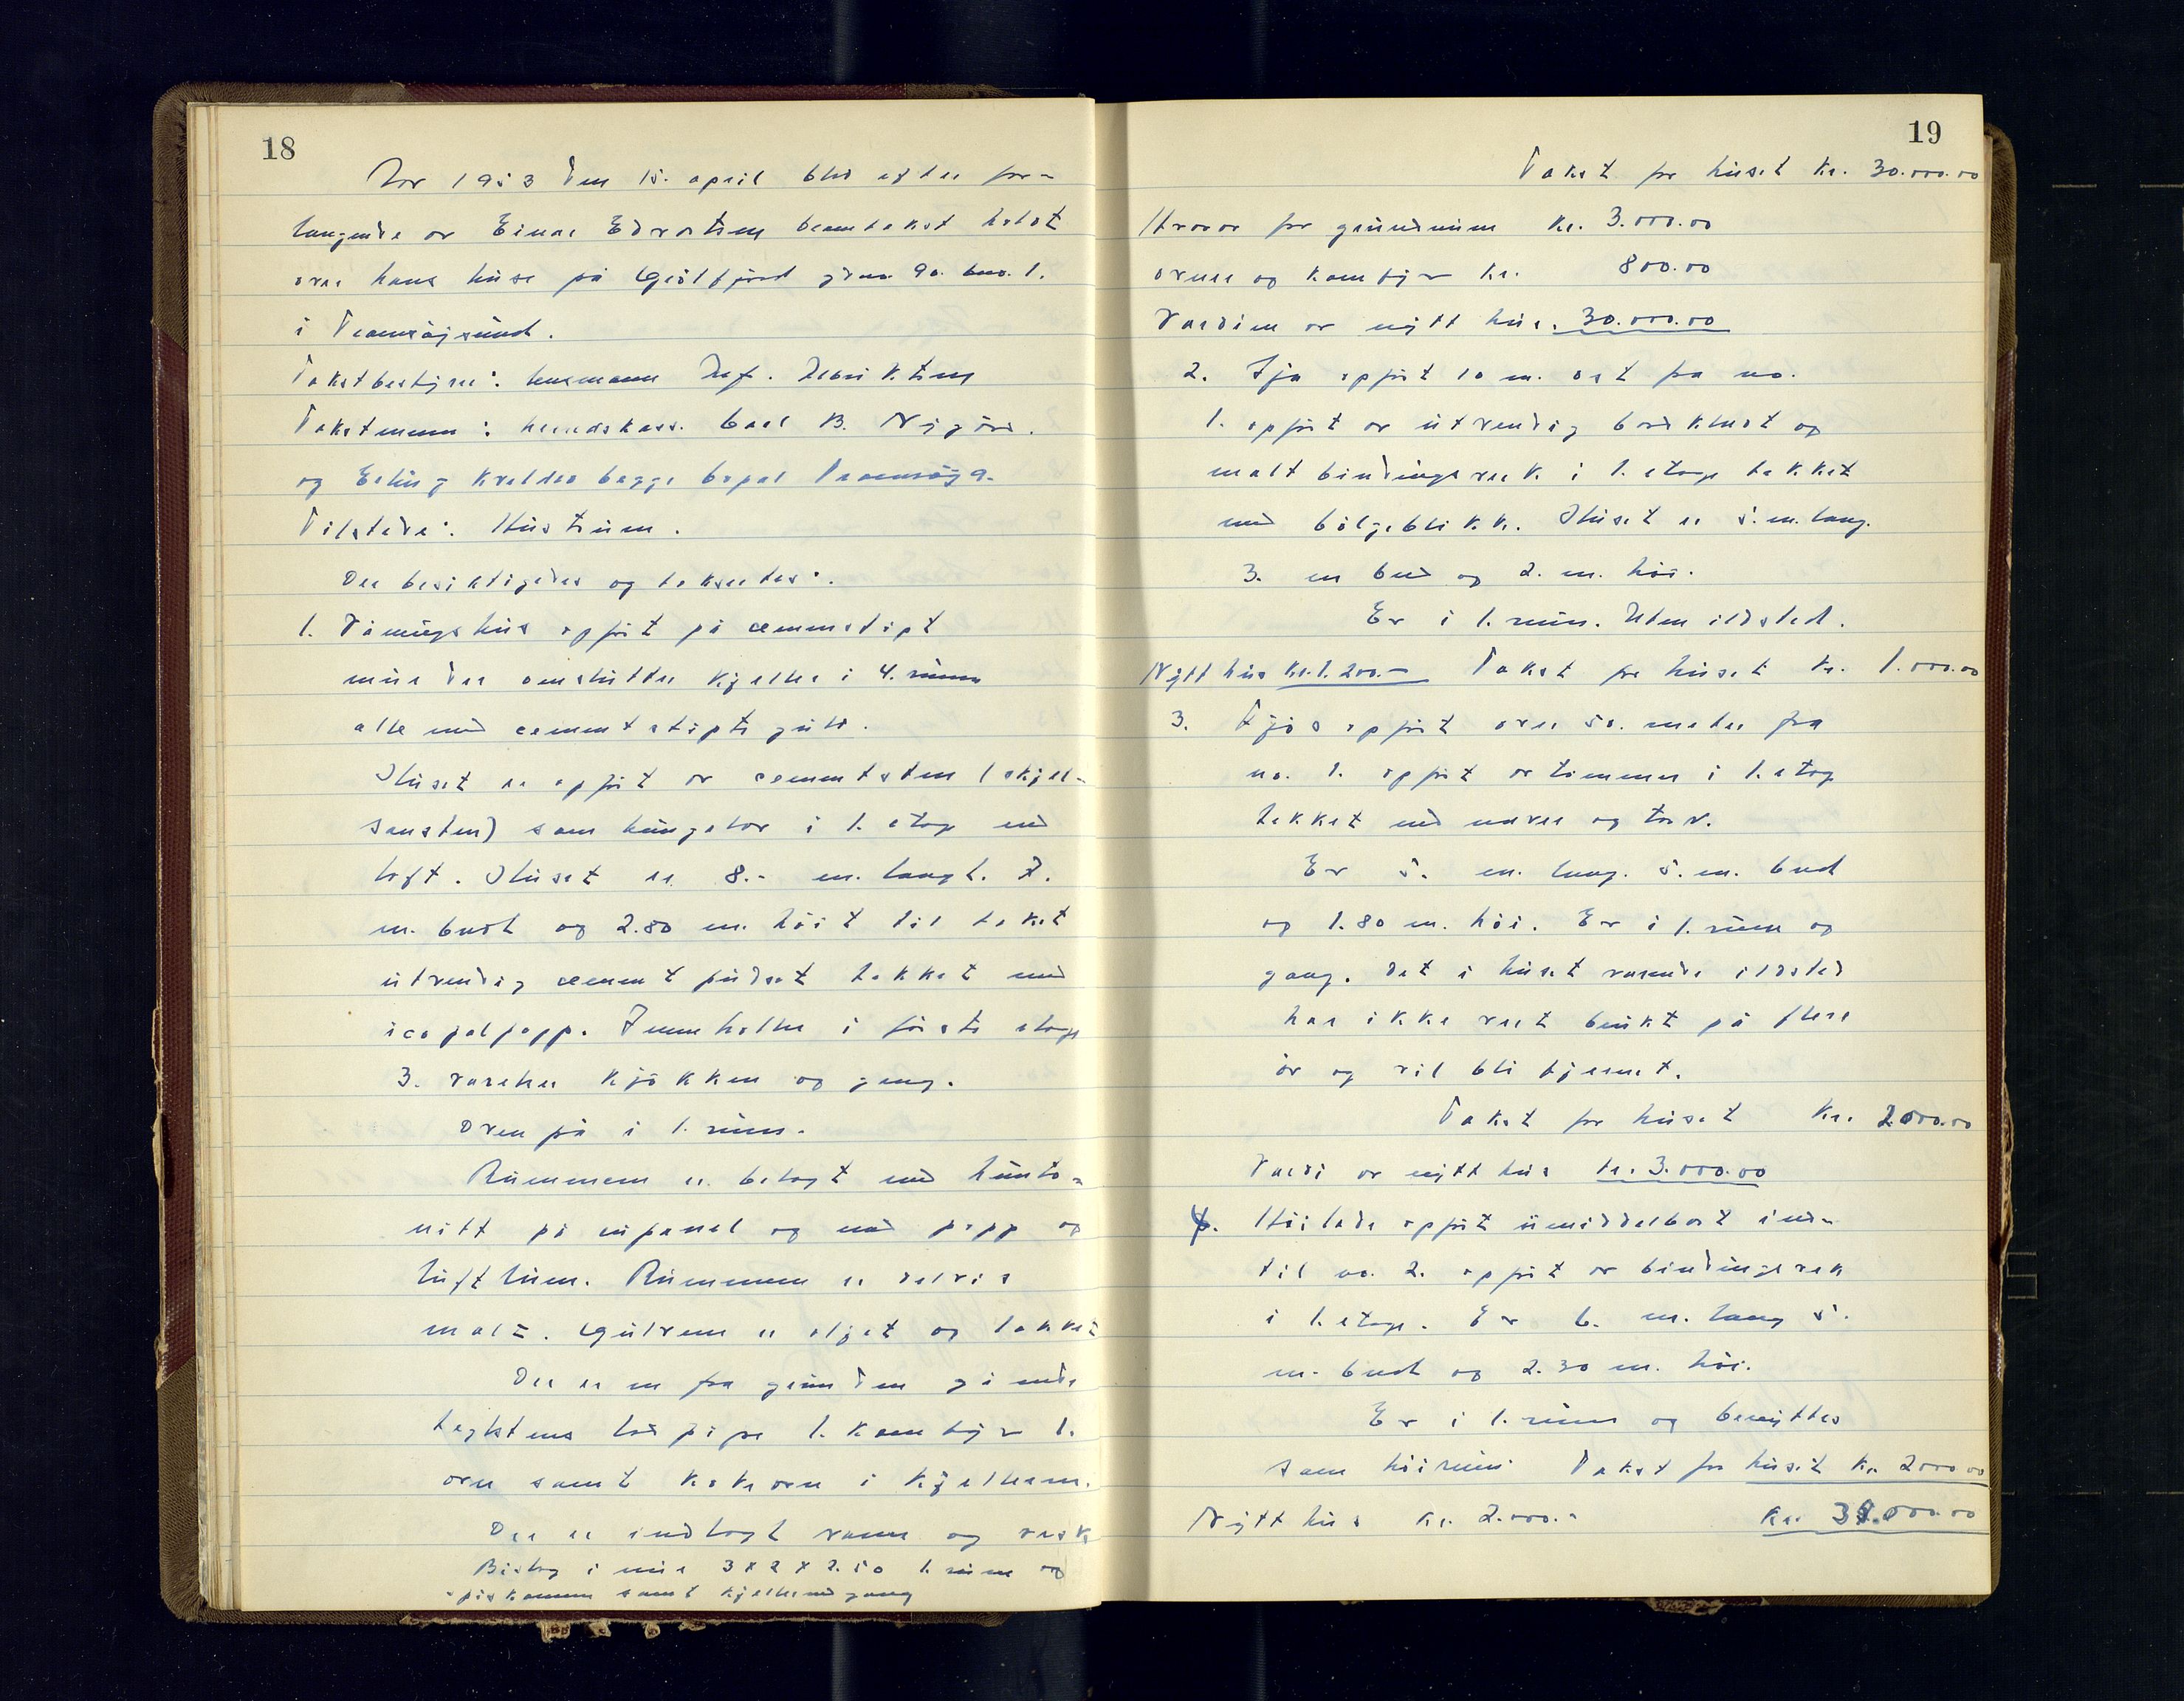 18
Aar 1953 den 15. april blev efter for-
langende av Einar Edvartsen branntakst holdt
over hans huse på Gjölfjord gdno. 90. bno. 1.
i Tromsöysund.
Takstbestyrer: lensmann
Takstmenn: herredskass. Carl B. Nygörd.
og Erling Kvalder begge bopel Tromsöya.
Tilstede: Hustruen.
Der besiktigedes og takseertes:
1. Våningshus opfört på cementstöpt
mur der omslutter kjeller i 4. rumm
alle med cementstöpte gulv.
Huset er opfört av cementsten (skjel-
sandsten) som bungalov i 1. etage med
loft. Huset er 8.- m. langt. 7.
m. bredt og 2.80 m. höit til taket
utvendig cement pudset tekket med
icopalpapp. Inneholder i förste etage
3. værelser kjökken og gang.
Ovenpå i 1. rum.
Rummene er belagt med hunto-
nitt på rupanel og med papp og
luftlum. Rummene er delvis
malt. Gulvene er oljet og lakket
Der er en fra grunden gående
teglstens löd pipe 1. komfyr 1.
ovn samt kokeovn i kjelleren.
Der er indlagt vann og vask
Bislag i mur 3 x 2 x 2.50 1. rum og
spiskammer samt kjellernedgang
19
Takst for huset kr. 30.000.00
Hvorav for grundmuren kr. 3.000.00
ovner og komfyr kr. 800.00
Værdien av nytt hus. 30.000.00
2. Sjå opfört 10 m. öst fra no.
1. opfört av utvendig bordklædt og
malt bindingsverk i 1. etage tekket
med bölgeblikk. Huset er 5. m. lang.
3. m bred og 2. m. höi.
Er i 1. rum. Uten ildsted.
Nytt hus kr. 1.200.- Takst for huset kr. 1.000.00
3. Fjös opfört over 50. meter fra
no. 1. opfört av tömmer i 1. etage
tekket med never og torv.
Er 5. m. lang. 5. m. bred
og 1.80 m. höi. Er i 1. rum og
gang. Det i huset værende ildsted
har ikke vært brukt på flere
år og vil bli fjernet.
Takst for huset kr. 2000.00
Værdi av nytt hus kr. 3.000.00
4. Höilade opfört umiddelbart ind-
til no. 2. opfört av bindingsverk
i 1. etage. Er 6. m. lang 5.
m. bred og 2.30 m. höi.
Er i 1. rum og benyttes
som höirum Takst for huset kr. 2000.00
Nytt hus kr. 2.000.- kr. .000.00